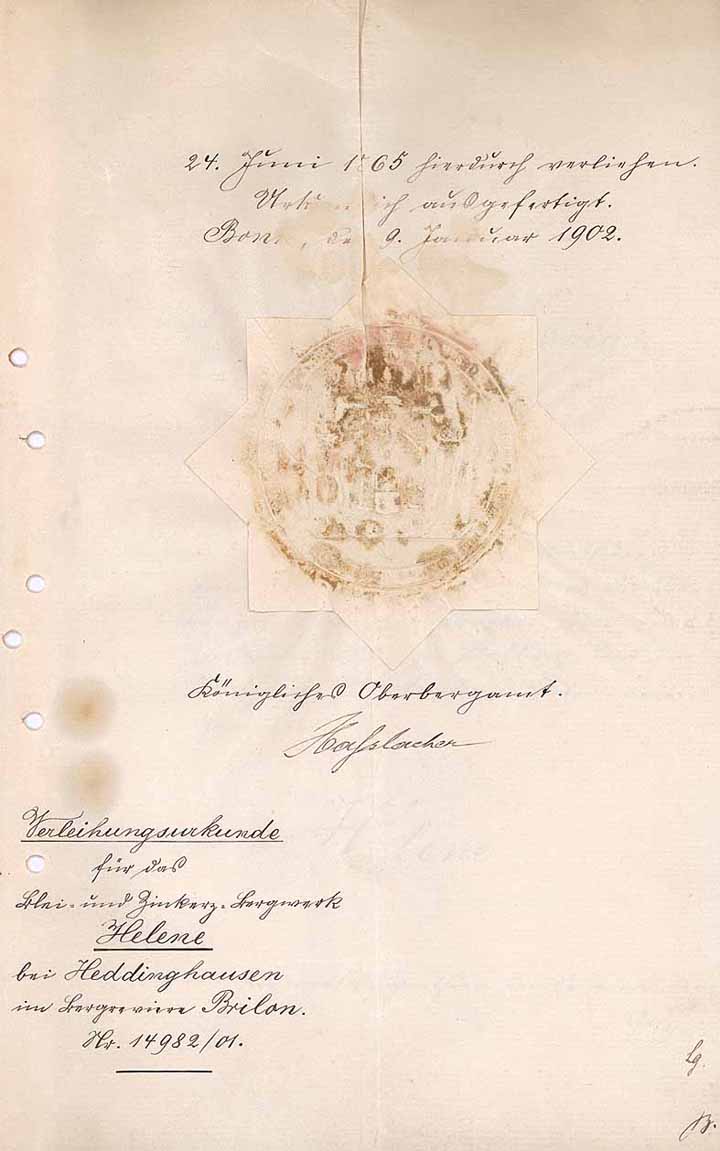 24. Juni 1865 hierdurch verliehen.
Urkundlich ausgefertigt.
Bonn, den 9. Januar 1902.
Königliches Oberbergamt.
Haßlacher
Verleihungsurkunde
für das
Blei- und Zinkerz-Bergwerk
Helene
bei Heddinghausen
im Bergreviere Brilon.
Nr. 14982/01.
Lg.